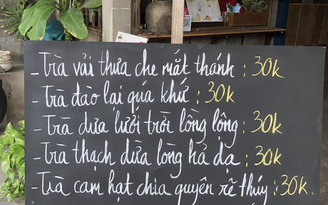 - Trà vải thưa che mắt thánh : 30k
- Trà đào lại quá khứ : 30k
- Trà dứa lưới trời lồng lộng : 30k
- Trà thạch dừa lòng hả dạ : 30k
- Trà cam hạt chia quyên rẽ thúy : 30k